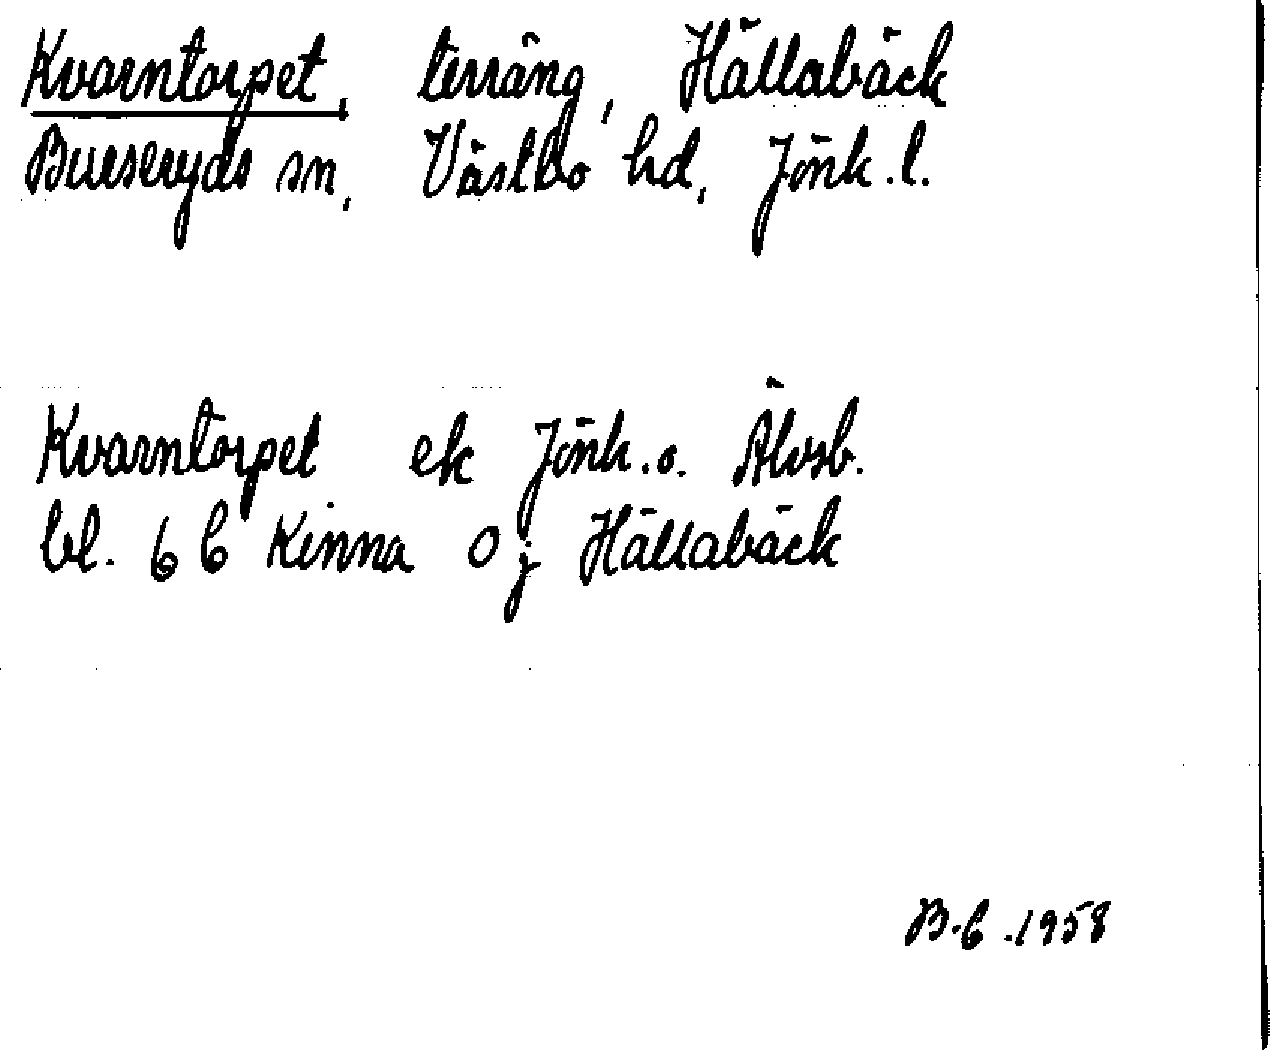 Kvarntorpet, terräng, Hällabäck
Burseryds sn, Västbo hd, Jönk.l.
Kvarntorpet ek Jönk.o. Älvsb.
bl. 6 C Kinna 0 j Hällabäck
B.C.1958